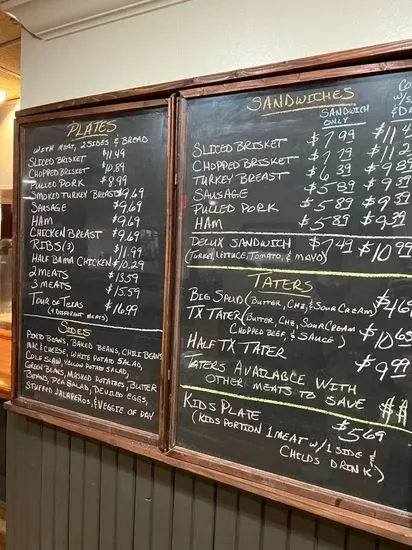 PLATES
WITH MEAT, 2 SIDES & BREAD
SLICED BRISKET $11.49
CHOPPED BRISKET $10.89
PULLED PORK $8.99
SMOKED TURKEY BREAST $9.69
SAUSAGE $9.69
HAM $9.69
CHICKEN BREAST $9.69
RIBS (3) $11.99
HALF BAMA CHICKEN $10.29
2 MEATS $13.59
3 MEATS $15.59
TOUR OF TEXAS $16.99
(4 DIFFERENT MEATS)
SIDES
BAKED BEANS, CHILI BEANS
MAC & CHEESE, WHITE POTATO SALAD,
COLE SLAW, YELLOW POTATO SALAD,
GREEN BEANS, MASHED POTATOES, BUTTER
BEANS, PEA SALAD, DEVILED EGGS,
STUFFED JALAPEÑOS, & VEGGIE OF DAY
SANDWICHES
SANDWICH
ONLY
SLICED BRISKET $7.99
CHOPPED BRISKET $7.79
TURKEY BREAST $6.39
SAUSAGE $5.89
PULLED PORK $5.89
HAM $5.89
DELUX SANDWICH $7.49 $10.99
(TURKEY, LETTUCE, TOMATO, & MAYO)
TATERS
BIG SPUD (BUTTER, CHZ, & SOUR CREAM)
TX TATER (BUTTER, CHZ, SOUR CREAM
CHOPPED BEEF, & SAUCE) $10.65
HALF TX TATER $9.99
TATERS AVAILABLE WITH
OTHER MEATS TO SAVE $$
KIDS PLATE $5.69
(KIDS PORTION 1 MEAT W/ 1 SIDE &
CHILDS DRINK)